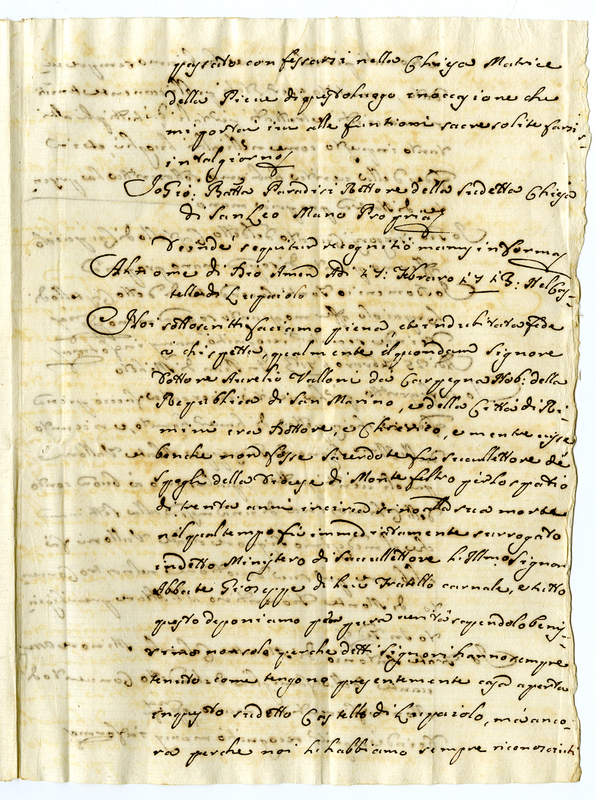 passato confessarsi nella Chiesa Matrice
della Pieve di questo luogo in occasione che
mi portai ivi alle funtioni sacre solite farsi
in tal giorno
Io Gio: Batta Pandisi Rettore della sudetta Chiesa
di San Leo Mano Propria
Deinde sequitur recognitio manus in forma
Al nome di Dio Amen Adi 17: Febraro 1713: Nel Cas-
tello di
Noi sottoscritti facciamo piena, et indubitata fede
a chi spetta, qualmente il quondam Signore
Dottore Aurelio Valloni da Carpegna Nob: della
Republica di San Marino, e della Città di Ri-
mini era Dottore, e Chierico, e mentre visse
benche non fosse sacerdote fù succollettore de
spogli della Diocese di Monte feltro per lo spatio
di trenta anni incirca sino alla sua morte
nel qual tempo fù immediatamente surrogato
in detto Ministero di succollettore l'Illmo Signor
Abbate Gioseppe di lui fratello carnale, e tutto
questo deponiamo per pura verità sapendolo beni-
ssimo non solo perche detti Signori hanno sempre
tenuto, come tengono presentemente casa aperta
in questo sudetto Castello di, mà anco-
ra perche noi li habbiamo sempre riconosciuti